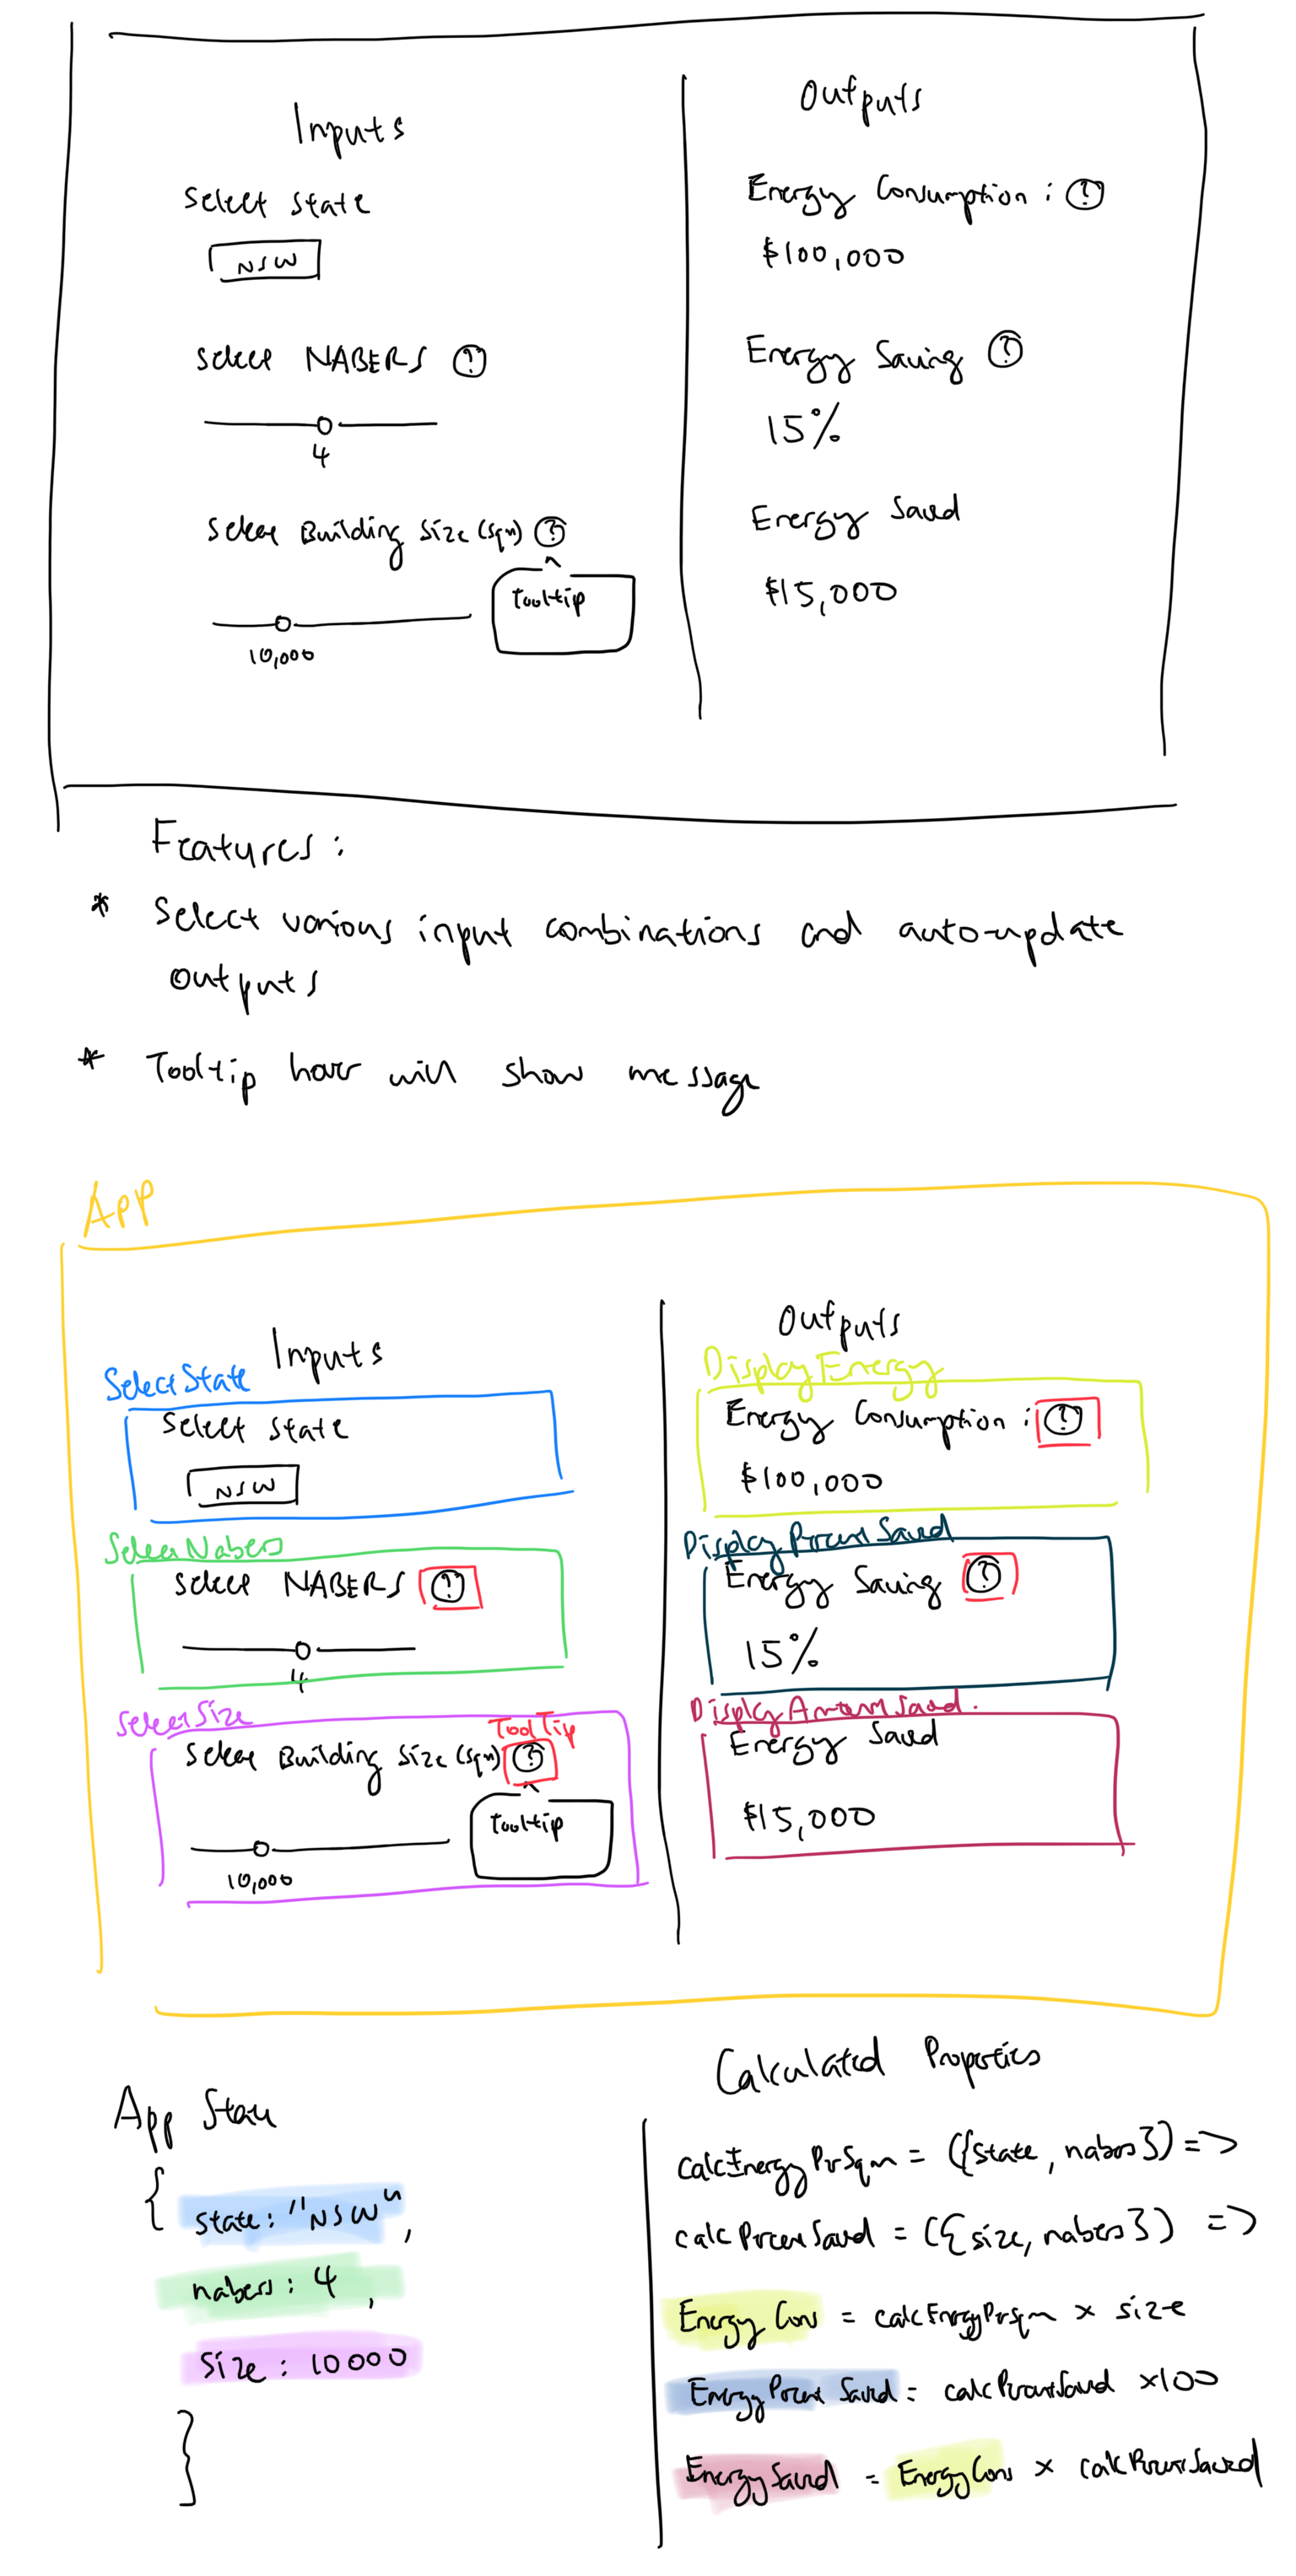 Inputs
Select State
NSW
Select NABERS ?
4
Select Building Size (sqm) ?
Tooltip
10,000
Outputs
Energy Consumption : ?
$100,000
Energy Saving ?
15%
Energy Saved
$15,000
Features :
* Select various input combinations and auto-update
outputs
* Tooltip hover will show message
App
Inputs
SelectState
Select State
NSW
SelectNabers
Select NABERS ?
4
SelectSize
ToolTip
Select Building Size (sqm) ?
Tooltip
10,000
Outputs
DisplayEnergy
Energy Consumption : ?
$100,000
DisplayPercentSaved
Energy Saving ?
15%
DisplayAmountSaved.
Energy Saved
$15,000
App State
{
state: "NSW",
nabers: 4,
size: 10000
}
Calculated Properties
calcEnergyPerSqm = ({state, nabers}) =>
calcPercentSaved = ({size, nabers}) =>
Energy Cons = calcEnergyPerSqm x size
EnergyPercent Saved = calcPercentSaved x100
EnergySaved = EnergyCons x calcPercentSaved